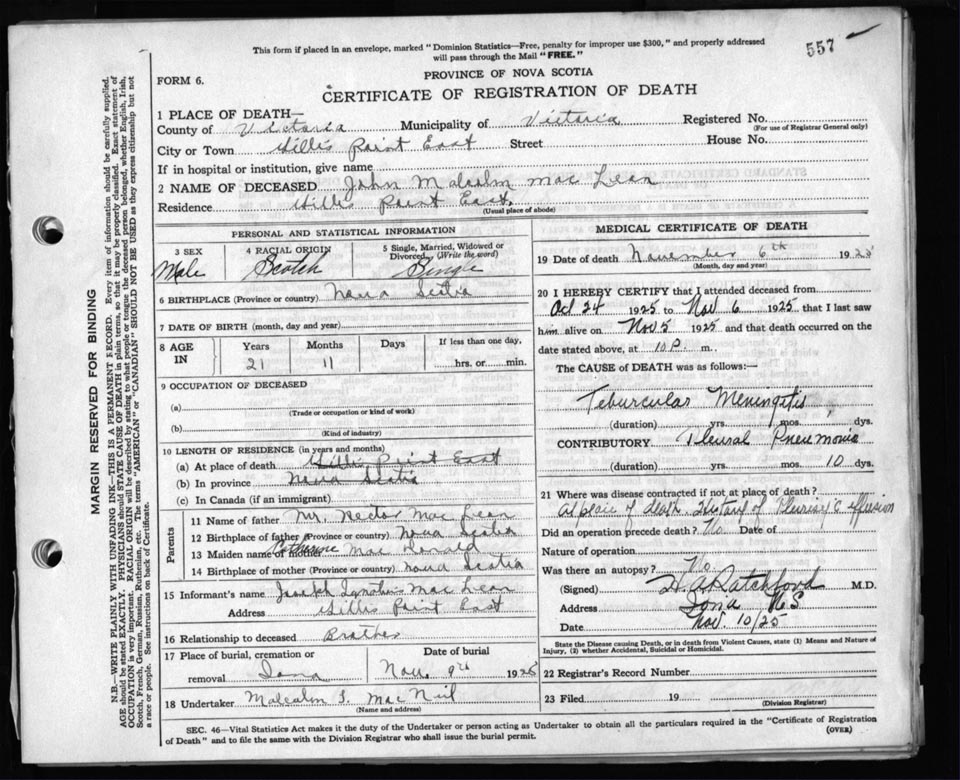 This form if placed in an envelope, marked "Dominion Statistics—Free, penalty for improper use $300," and properly addressed
will pass through the Mail "FREE."
557
PROVINCE OF NOVA SCOTIA
FORM 6.
CERTIFICATE OF REGISTRATION OF DEATH
1 PLACE OF DEATH—
County of Victoria Municipality of Victoria Registered No.
(For use of Registrar General only)
City or Town Gillis Point East Street House No.
If in hospital or institution, give name
2 NAME OF DECEASED John Malcolm Mac Lean
Residence Gillis Point East.
(Usual place of abode)
PERSONAL AND STATISTICAL INFORMATION
3 SEX 4 RACIAL ORIGIN 5 Single, Married, Widowed or
Divorced (Write the word)
Male Scotch Single
6 BIRTHPLACE (Province or country) Nova Scotia
7 DATE OF BIRTH (month, day and year)
8 AGE IN Years Months Days If less than one day,
21 11 hrs. or min.
9 OCCUPATION OF DECEASED
(a)
(Trade or occupation or kind of work)
(b)
(Kind of industry)
10 LENGTH OF RESIDENCE (in years and months)
(a) At place of death Gillis Point East
(b) In province Nova Scotia
(c) In Canada (if an immigrant)
Parents
11 Name of father Mr. Hector Mac Lean
12 Birthplace of father (Province or country) Nova Scotia
13 Maiden name of mother Catherine Mac Donald
14 Birthplace of mother (Province or country) Nova Scotia
15 Informant's name Joseph Ignatius Mac Lean
Address Gillis Point East
16 Relationship to deceased Brother
17 Place of burial, cremation or Date of burial
removal Iona Nov. 9th 1925
18 Undertaker Malcolm S. Mac Neil
(Name and address)
MEDICAL CERTIFICATE OF DEATH
19 Date of death November 6th 1925
(Month, day and year)
20 I HEREBY CERTIFY that I attended deceased from
Oct 24 1925 to Nov 6 1925 that I last saw
him alive on Nov 5 1925 and that death occurred on the
date stated above, at 10 P. m.
The CAUSE of DEATH was as follows:—
Teburcular Meningitis
(duration) yrs. mos. dys.
CONTRIBUTORY Pleural Pneumonia
(duration) yrs. mos. 10 dys.
21 Where was disease contracted if not at place of death?
At place of death. History of Pleurisy c effusion
Did an operation precede death? No. Date of
Nature of operation
Was there an autopsy? No.
(Signed) H. A. Ratchford M.D.
Address Iona N.S
Date Nov. 10/25
State the Disease causing Death, or in death from Violent Causes, state (1) Means and Nature of
Injury, (2) whether Accidental, Suicidal or Homicidal.
22 Registrar's Record Number
23 Filed 19
(Division Registrar)
SEC. 46—Vital Statistics Act makes it the duty of the Undertaker or person acting as Undertaker to obtain all the particulars required in the "Certificate of Registration
of Death" and to file the same with the Division Registrar who shall issue the burial permit.
(OVER)
MARGIN RESERVED FOR BINDING
N.B.—WRITE PLAINLY WITH UNFADING INK—THIS IS A PERMANENT RECORD. Every item of information should be carefully supplied.
AGE should be stated EXACTLY. PHYSICIANS should STATE CAUSE OF DEATH in plain terms, so that it may be properly classified. Exact statement of
OCCUPATION is very important. RACIAL ORIGIN will be described by stating to what people or tongue the deceased person belonged, whether English, Irish,
Scotch, French, German, Russian, Ruthenian, etc. The terms "AMERICAN" or "CANADIAN" SHOULD NOT BE USED as they express citizenship but not
a race or people. See instructions on back of Certificate.